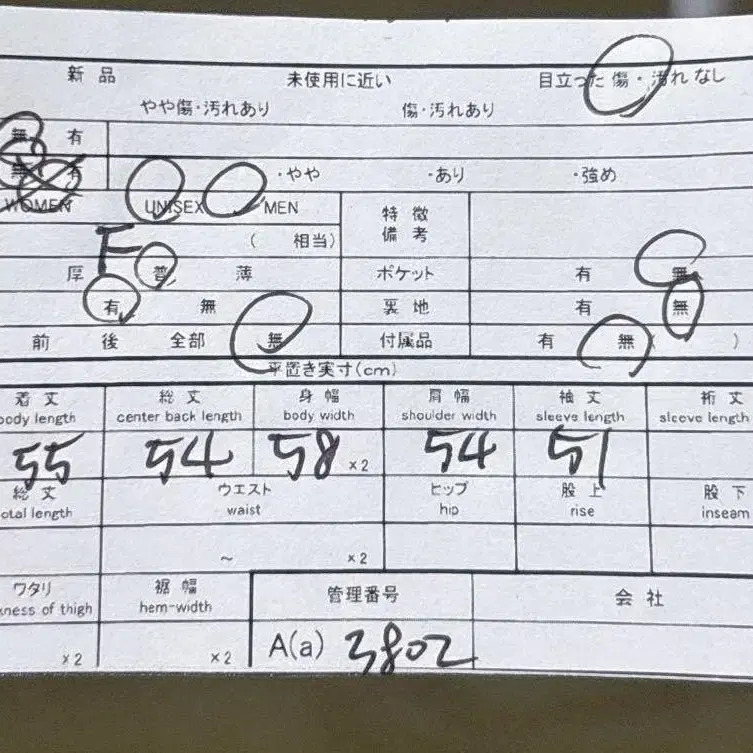 新品 未使用に近い 目立った傷・汚れなし
やや傷・汚れあり 傷・汚れあり
無 有
無 有 ・やや ・あり ・強め
WOMEN UNISEX MEN 特徴
備考
F ( 相当)
厚 普 薄 ポケット 有 無
有 無 裏地 有 無
前 後 全部 無 付属品 有 無( )
平置き実寸(cm)
着丈 総丈 身幅 肩幅 袖丈 裄丈
body length center back length body width shoulder width sleeve length sleeve length
55 54 58 ×2 54 51
総丈 ウエスト ヒップ 股上 股下
total length waist hip rise inseam
~ ×2
ワタリ 裾幅 管理番号 会社
kness of thigh hem-width
×2 ×2 A(a) 3802